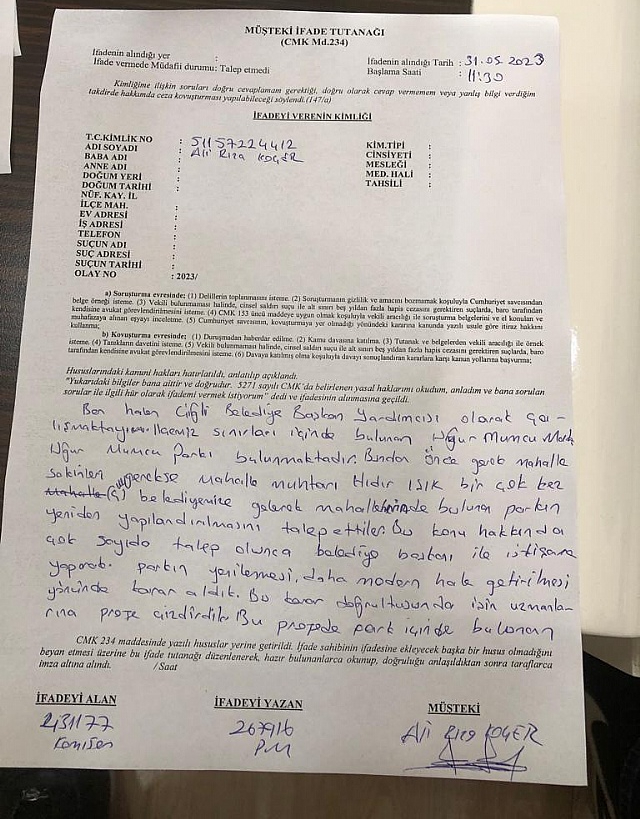 MÜŞTEKİ İFADE TUTANAĞI
(CMK Md.234)
İfadenin alındığı yer :
İfade vermede Müdafii durumu: Talep etmedi
İfadenin alındığı Tarih : 31.05.2023
Başlama Saati : 11:30
Kimliğime ilişkin soruları doğru cevaplamam gerektiği, doğru olarak cevap vermemem veya yanlış bilgi verdiğim
takdirde hakkımda ceza kovuşturması yapılabileceği söylendi.(147/a)
İFADEYİ VERENİN KİMLİĞİ
T.C.KİMLİK NO : 51157224412
ADI SOYADI : Ali Rıza KOÇER
BABA ADI :
ANNE ADI
DOĞUM YERİ :
DOĞUM TARİHİ :
NÜF. KAY. İL
İLÇE MAH. :
EV ADRESİ :
İŞ ADRESİ :
TELEFON :
SUÇUN ADI :
SUÇ ADRESİ :
SUÇUN TARİHİ :
OLAY NO : 2023/
KİM.TİPİ :
CİNSİYETİ :
MESLEĞİ :
MED. HALİ :
TAHSİLİ :
a) Soruşturma evresinde; (1) Delillerin toplanmasını isteme. (2) Soruşturmanın gizlilik ve amacını bozmamak koşuluyla Cumhuriyet savcısından
belge örneği isteme. (3) Vekili bulunmaması halinde, cinsel saldırı suçu ile alt sınırı beş yıldan fazla hapis cezasını gerektiren suçlarda, baro tarafından
kendisine avukat görevlendirilmesini isteme. (4) CMK 153 üncü maddeye uygun olmak koşuluyla vekili aracılığı ile soruşturma belgelerini ve el konulan ve
muhafazaya alınan eşyayı inceletme. (5) Cumhuriyet savcısının, kovuşturmaya yer olmadığı yönündeki kararına kanunda yazılı usule göre itiraz hakkını
kullanma;
b) Kovuşturma evresinde; (1) Duruşmadan haberdar edilme. (2) Kamu davasına katılma. (3) Tutanak ve belgelerden vekili aracılığı ile örnek
isteme. (4) Tanıkların davetini isteme. (5) Vekili bulunmaması halinde, cinsel saldırı suçu ile alt sınırı beş yıldan fazla hapis cezasını gerektiren suçlarda, baro
tarafından kendisine avukat görevlendirilmesini isteme. (6) Davaya katılmış olma koşuluyla davayı sonuçlandıran kararlara karşı kanun yollarına başvurma;
Hususlarındaki kanuni hakları hatırlatıldı, anlatılıp açıklandı.
"Yukarıdaki bilgiler bana aittir ve doğrudur. 5271 sayılı CMK'da belirlenen yasal haklarımı okudum, anladım ve bana sorulan
sorular ile ilgili hür olarak ifademi vermek istiyorum" dedi ve ifadesinin alınmasına geçildi.
Ben halen Çiğli Belediye Başkan Yardımcısı olarak ça-
lışmaktayım. İlçemiz sınırları içinde bulunan Uğur Mumcu Mah.
Uğur Mumcu Parkı bulunmaktadır. Bundan önce gerek mahalle
sakinleri gerekse mahalle muhtarı Hıdır ışık bir çok kez
belediyemize gelerek mahallesinde bulunan parkın
yeniden yapılandırılmasını talep ettiler. Bu konu hakkında
çok sayıda talep olunca belediye başkanı ile istişare
yaparak parkın yenilemesi, daha modern hale getirilmesi
yönünde karar aldık. Bu karar doğrultusunda işin uzmanla-
rına proje çizdirdik. Bu projede park içinde bulunan
CMK 234 maddesinde yazılı hususlar yerine getirildi. İfade sahibinin ifadesine ekleyecek başka bir husus olmadığını
beyan etmesi üzerine bu ifade tutanağı düzenlenerek, hazır bulunanlarca okunup, doğruluğu anlaşıldıktan sonra taraflarca
imza altına alındı. / Saat
İFADEYİ ALAN
İFADEYİ YAZAN
MÜŞTEKİ
431177
Komiser
267916
P.M
Ali Rıza KOÇER